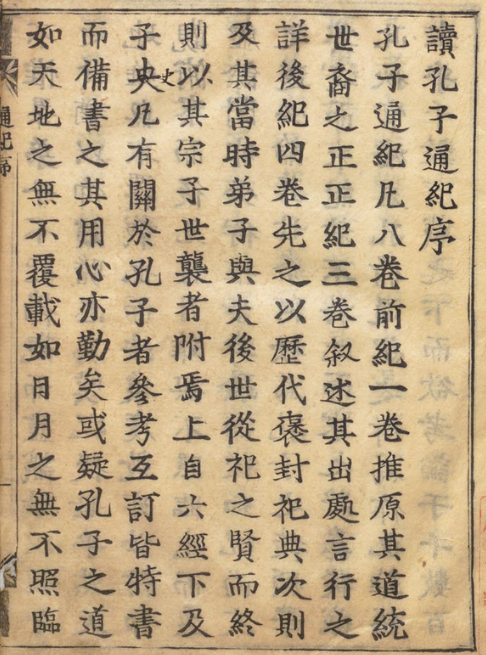 讀孔子通紀序
孔子通紀凡八卷前紀一卷推原其道統
世裔之正正紀三卷叙述其出處言行之
詳後紀四卷先之以歷代褒封祀典次則
及其當時弟子與夫後世從祀之賢而終
則以其宗子世襲者附焉上自六經下及
子史央凡有關於孔子者參考互訂皆特書
而備書之其用心亦勤矣或疑孔子之道
如天地之無不覆載如日月之無不照臨
通紀序